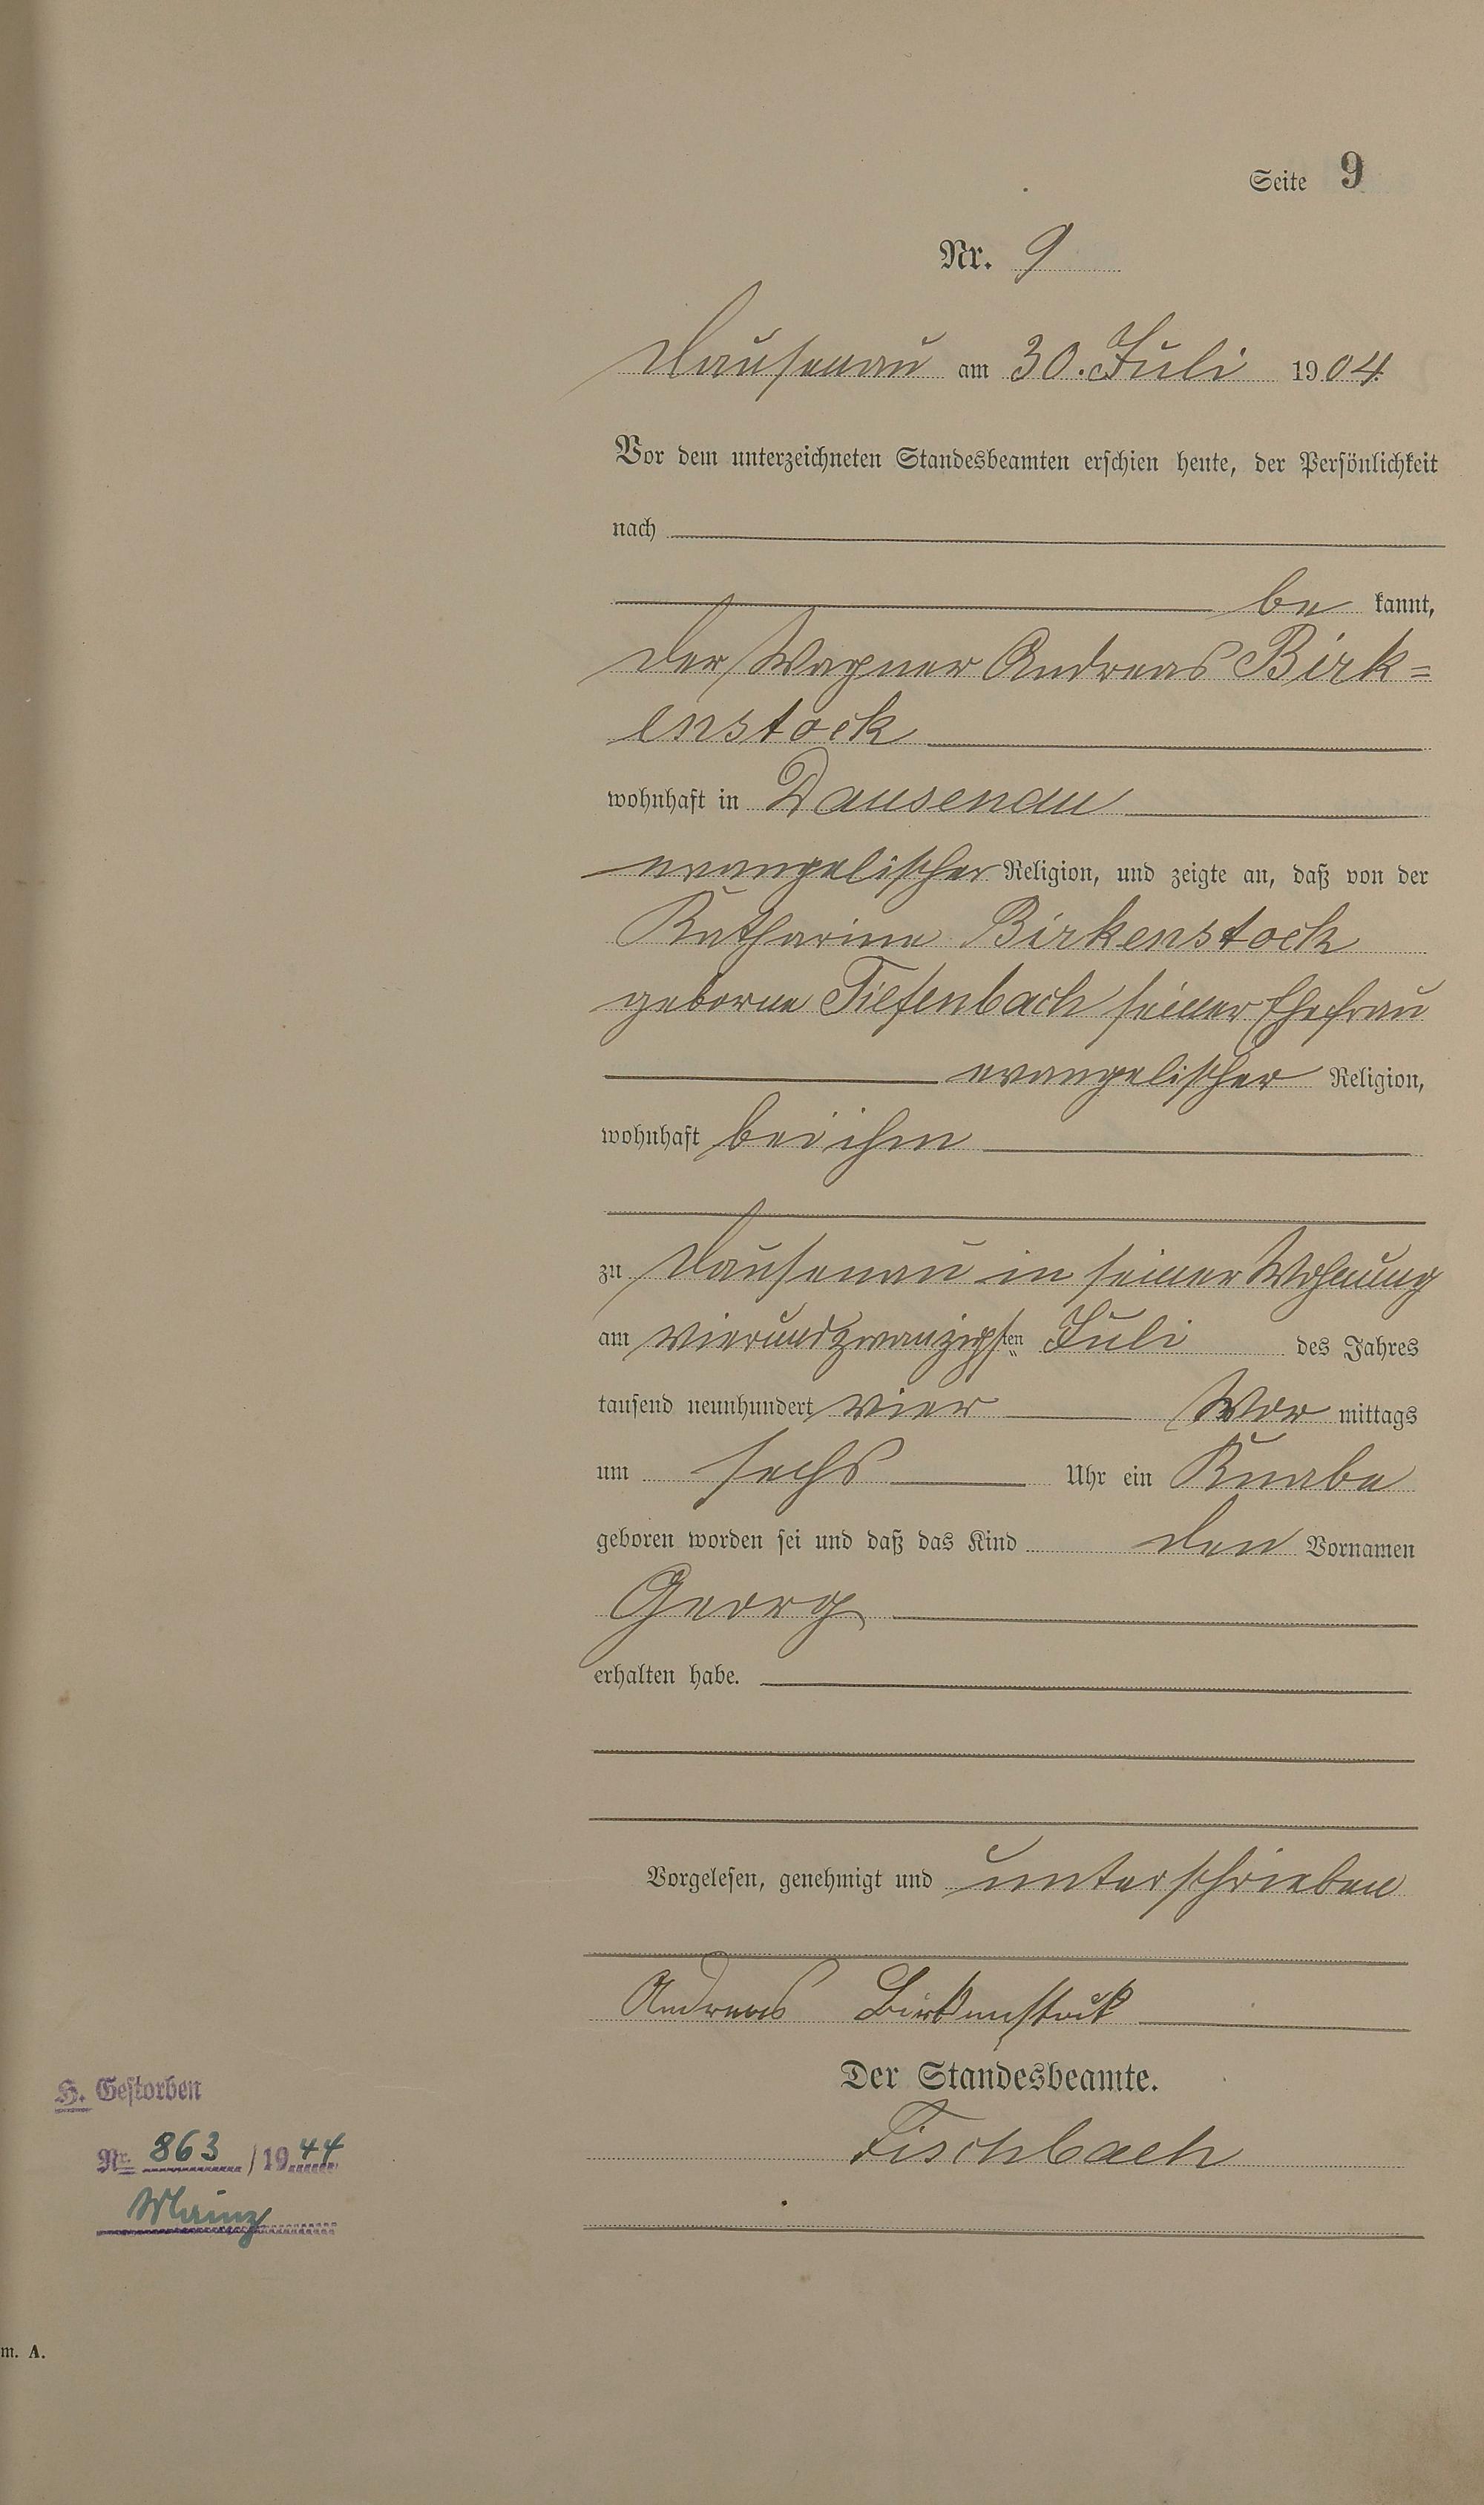 Seite 9
Nr. 9
Dausenau am 30. Juli 1904.
Vor dem unterzeichneten Standesbeamten erschien heute, der Persönlichkeit
nach
be kannt,
der Wagner Andreas Birk=
enstock
wohnhaft in Dausenau
evangelischer Religion, und zeigte an, daß von der
Katharine Birkenstock
geborne Tiefenbach seiner Ehefrau
evangelischer Religion,
wohnhaft bei ihm
zu Dausenau in seiner Wohnung
am vierundzwanzigsten Juli des Jahres
tausend neunhundert vier Vor mittags
um sechs Uhr ein Knabe
geboren worden sei und daß das Kind den Vornamen
Georg
erhalten habe.
Vorgelesen, genehmigt und unterschrieben
Andreas Birkenstock
Der Standesbeamte.
Fischbach
H. Gestorben
Nr. 863 / 1944
Mainz
m. A.